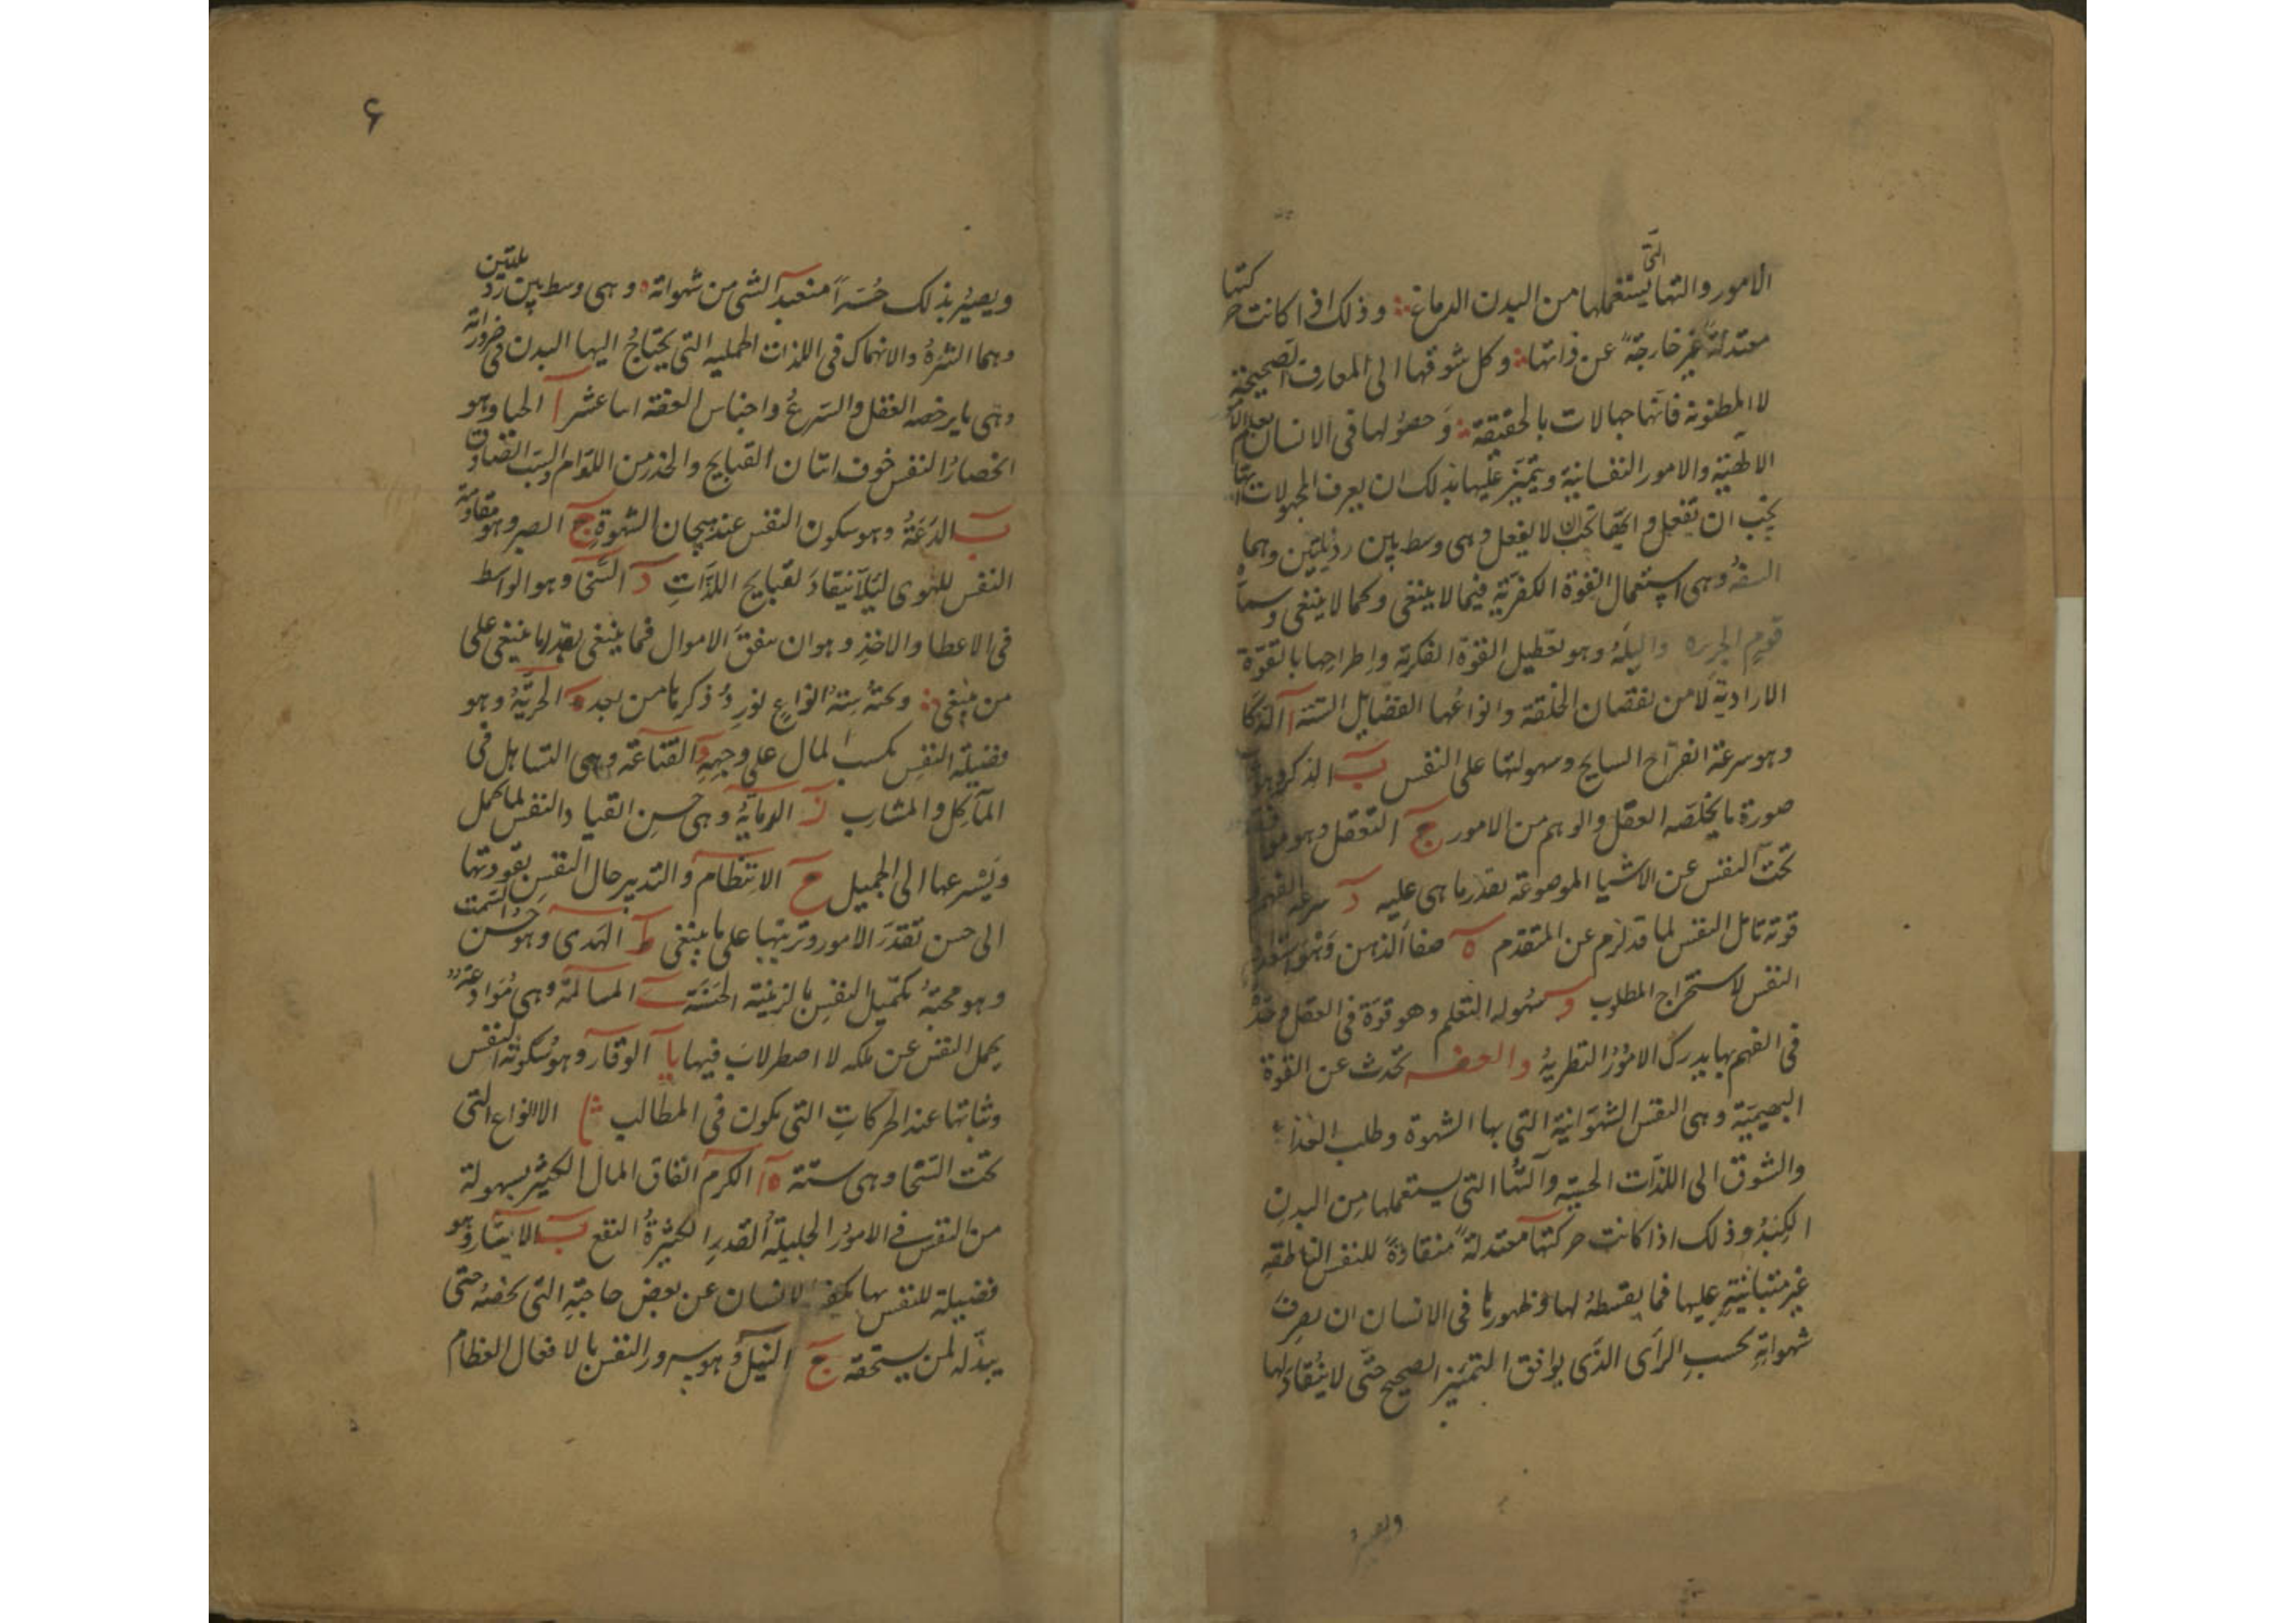 الامور والتها التى يستعملها من البدن الدماغ وذلك اذا كانت حركتها
معتدلةً غير خارجةً عن ذاتها وكل شوقها الى المعارف الصحيحة
لا المظنونه فانها جهالات بالحقيقة وحصولها فى الانسان بعلم
الالهية والامور النفسانية ويتميز عليها بذلك ان يعرف المجهولات ايها
يجب ان تفعل وايها تجب ان لا يفعل وهى وسط بين رذيلتين وهما
السفه وهى استعمال القوة الفكرية فيما لا ينبغى وكما لا ينبغى وسماه
قوم الجربزه والبله وهو تعطيل القوة الفكرية واطراحها بالقوة
الارادية لا من نقصان الخلقة وانواعها الفضايل الستة آ الذكا
وهو سرعة انقراح السايح وسهولتها على النفس ب الذكر وهو
صورة ما يخلصه العقل والوهم من الامور ج التعقل وهو
تحت النفس عن الاشيا الموضوعة بقدر ما هى عليه د سرعه الفهم
قوته تامل النفس لما قد لزم عن المتقدم ه صفا الذهن وهو استعداد
النفس لاستخراج المطلوب و سهوله التعلم وهو قوة فى العقل وحدّة
فى الفهم بها يدرك الامور النظرية والعفه تحدث عن القوة
البهيمية وهى النفس الشهوانية التى بها الشهوة وطلب الغذا
والشوق الى اللذات الحسية وآلتها التى يستعملها من البدن
الكبد وذلك اذا كانت حركتها معتدلةً منقادةً للنفس الناطقه
غير متبانية عليها فما يقسطه لها وظهورها فى الانسان ان يصرف
شهواته بحسب الرأى الذى يوافق التميز الصحيح حتى لا ينقاد لها
ويصير
۶
ويصير بذلك حُرّاً منعبد الشى من شهواته وهى وسط بين رذيلتين
وهما الشره والانهماك فى اللذات الجميله التى يحتاج اليها البدن فى ضروراته
وهى ما يرخصه العقل والشرع واجناس العفة اثنا عشر آ الحيا وهو
انحصار النفس خوف اتيان القبايح والحذر من اللوام والسب الصادق
ب الدعة وهو سكون النفس عند هيجان الشهوة ج الصبر وهو مقاومة
النفس للهوى ليلا ينقاد لقبايح اللذات د السخى وهو الواسط
فى الاعطا والاخذ وهو ان ينفق الاموال فما ينبغى بقدر ما ينبغى على
من ينبغى وتحته ستة انواع نورد ذكرها من بعد ه الحرية وهو
فضيلة النفس بكسب المال على وجهه و القناعة وهى التساهل فى
المآكل والمشارب ز الدماثة وهى حسن انقياد النفس لما كمل
ويسرعها الى الجميل ح الانتظام والتدبير حال النفس بقودتها
الى حسن تقدر الامور وترتيبها على ما ينبغى ط الهدى وهو حسن السمت
وهو محبة تكميل النفس بالزينة الحسنة ى المسالمة وهى موادعة
يحمل النفس عن ملكه لا اضطرلاب فيها يا الوقار وهو سكونه النفس
وثباتها عند الحركات التى يكون فى المطالب الانواع التى
تحت السخا وهى ستة آ الكرم انفاق المال الكثير بسهولة
من النفس فى الامور الجليلة القدر الكثيرة النفع ب الايثار وهو
فضيلة للنفس بها يكف الانسان عن بعض حاجته التى تخصه حتى
يبذله لمن يستحقه ج النيل وهو سرور النفس بالافعال العظام